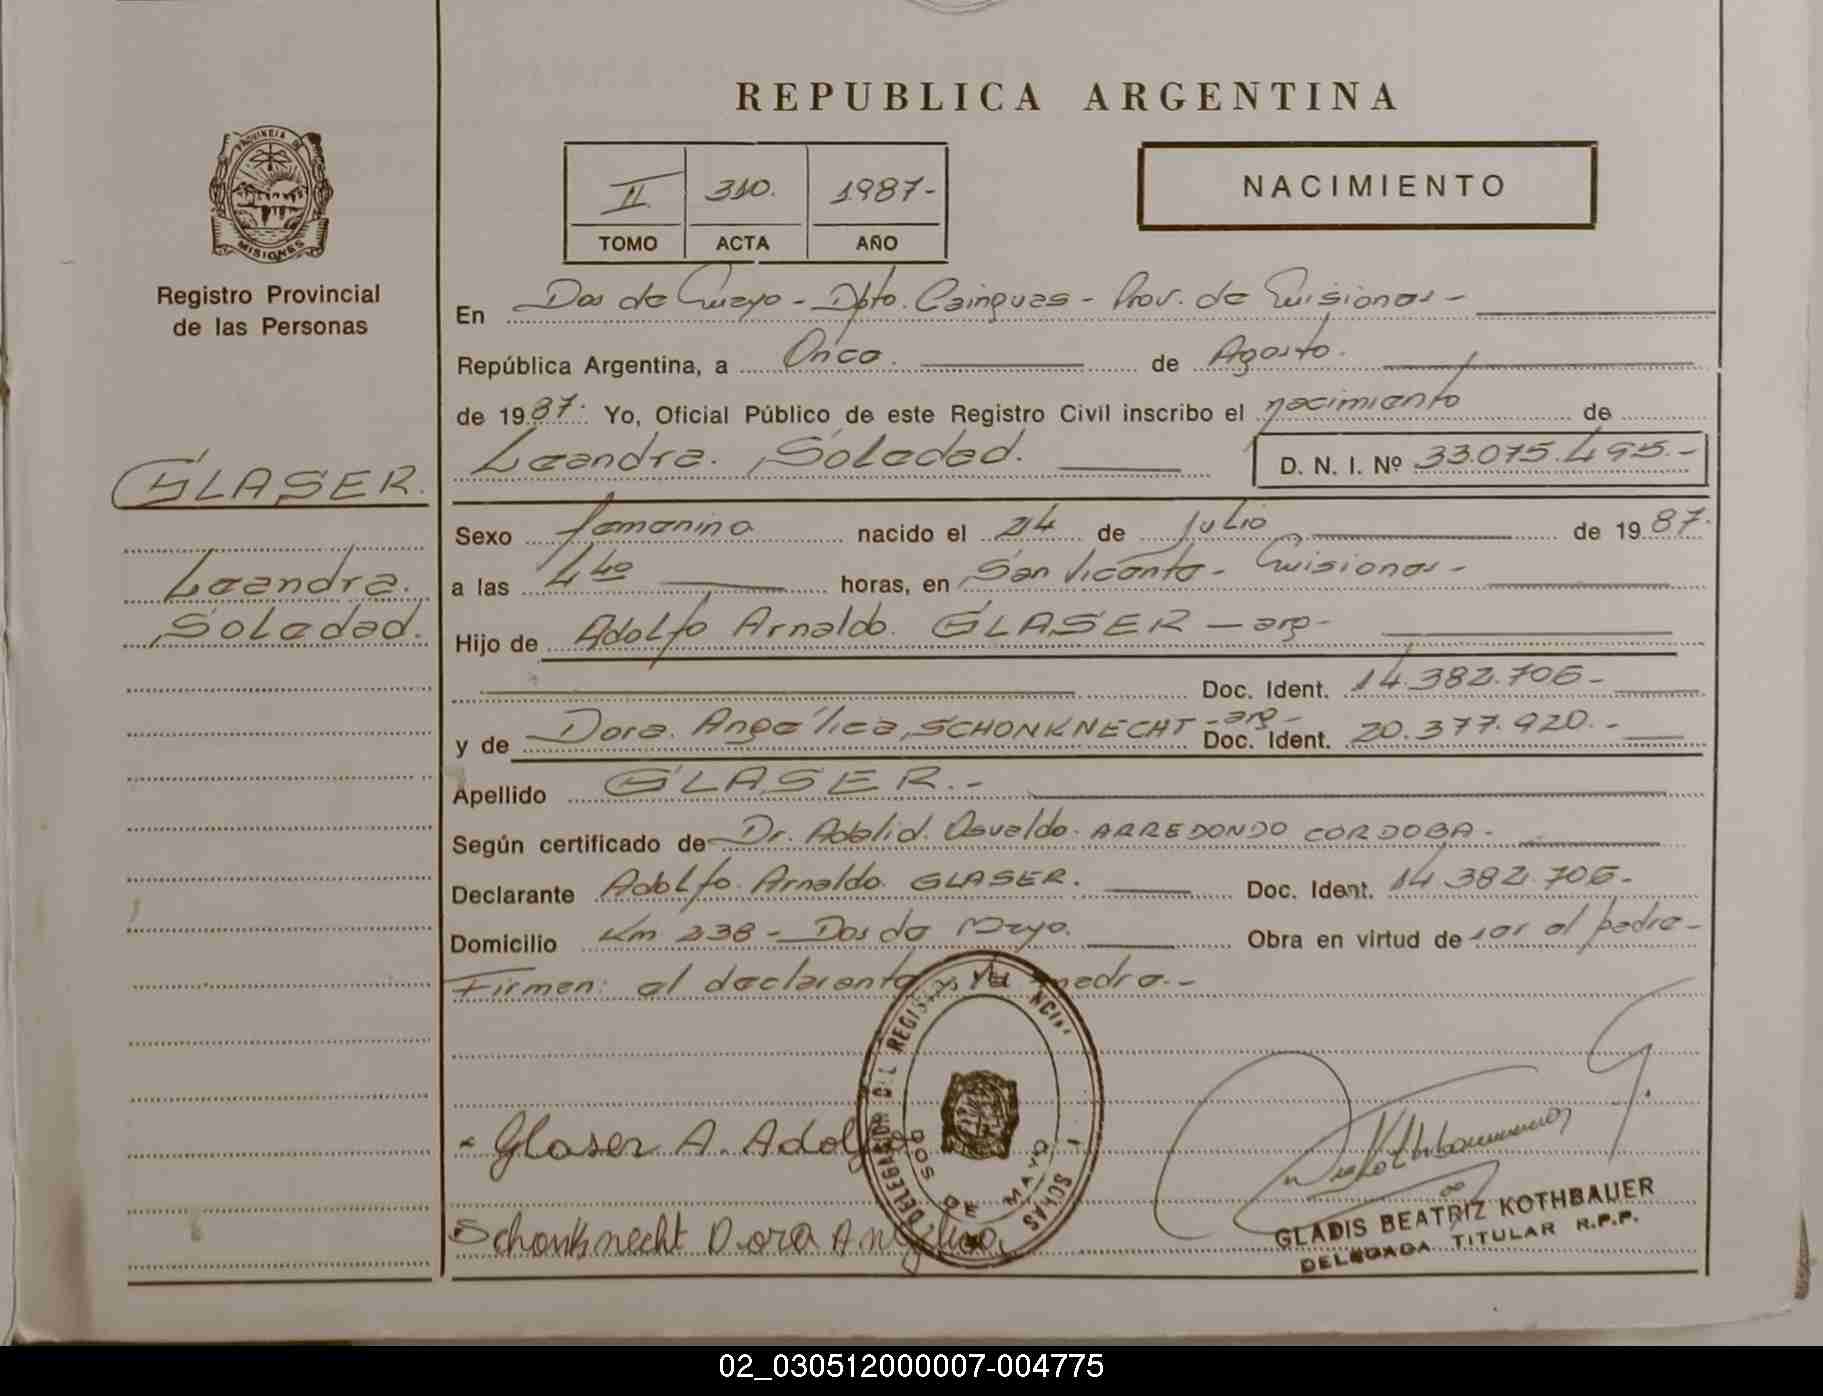 REPUBLICA ARGENTINA
PROVINCIA DE
MISIONES
Registro Provincial
de las Personas
II 310. 1987-
TOMO ACTA AÑO
NACIMIENTO
En Dos de Mayo - Dpto. Cainguas - Prov. de Misiones -
República Argentina, a Once. de Agosto.
de 1987. Yo, Oficial Público de este Registro Civil inscribo el nacimiento de
Leandra. Soledad. D. N. I. Nº 33.075.495.-
GLASER.
Leandra.
Soledad.
Sexo femenino nacido el 24 de Julio de 1987.
a las 4 40 horas, en San Vicente - Misiones -
Hijo de Adolfo Arnaldo. GLASER - arg -
Doc. Ident. 14.382.706 -
y de Dora. Angélica, SCHONKNECHT - arg - Doc. Ident. 20.377.920. -
Apellido GLASER. -
Según certificado de Dr. Adalid. Osvaldo. ARREDONDO CORDOBA -
Declarante Adolfo. Arnaldo. GLASER. Doc. Ident. 14.382.706 -
Domicilio Km 238 - Dos de Mayo. Obra en virtud de ser el padre -
Firman: el declarante y la madre. -
Glaser A. Adolfo
Schonknecht Dora Angelica
DELEGACION DEL REGISTRO
DOS DE MAYO
GLADIS BEATRIZ KOTHBAUER
DELEGADA TITULAR R.P.P.
02_030512000007-004775